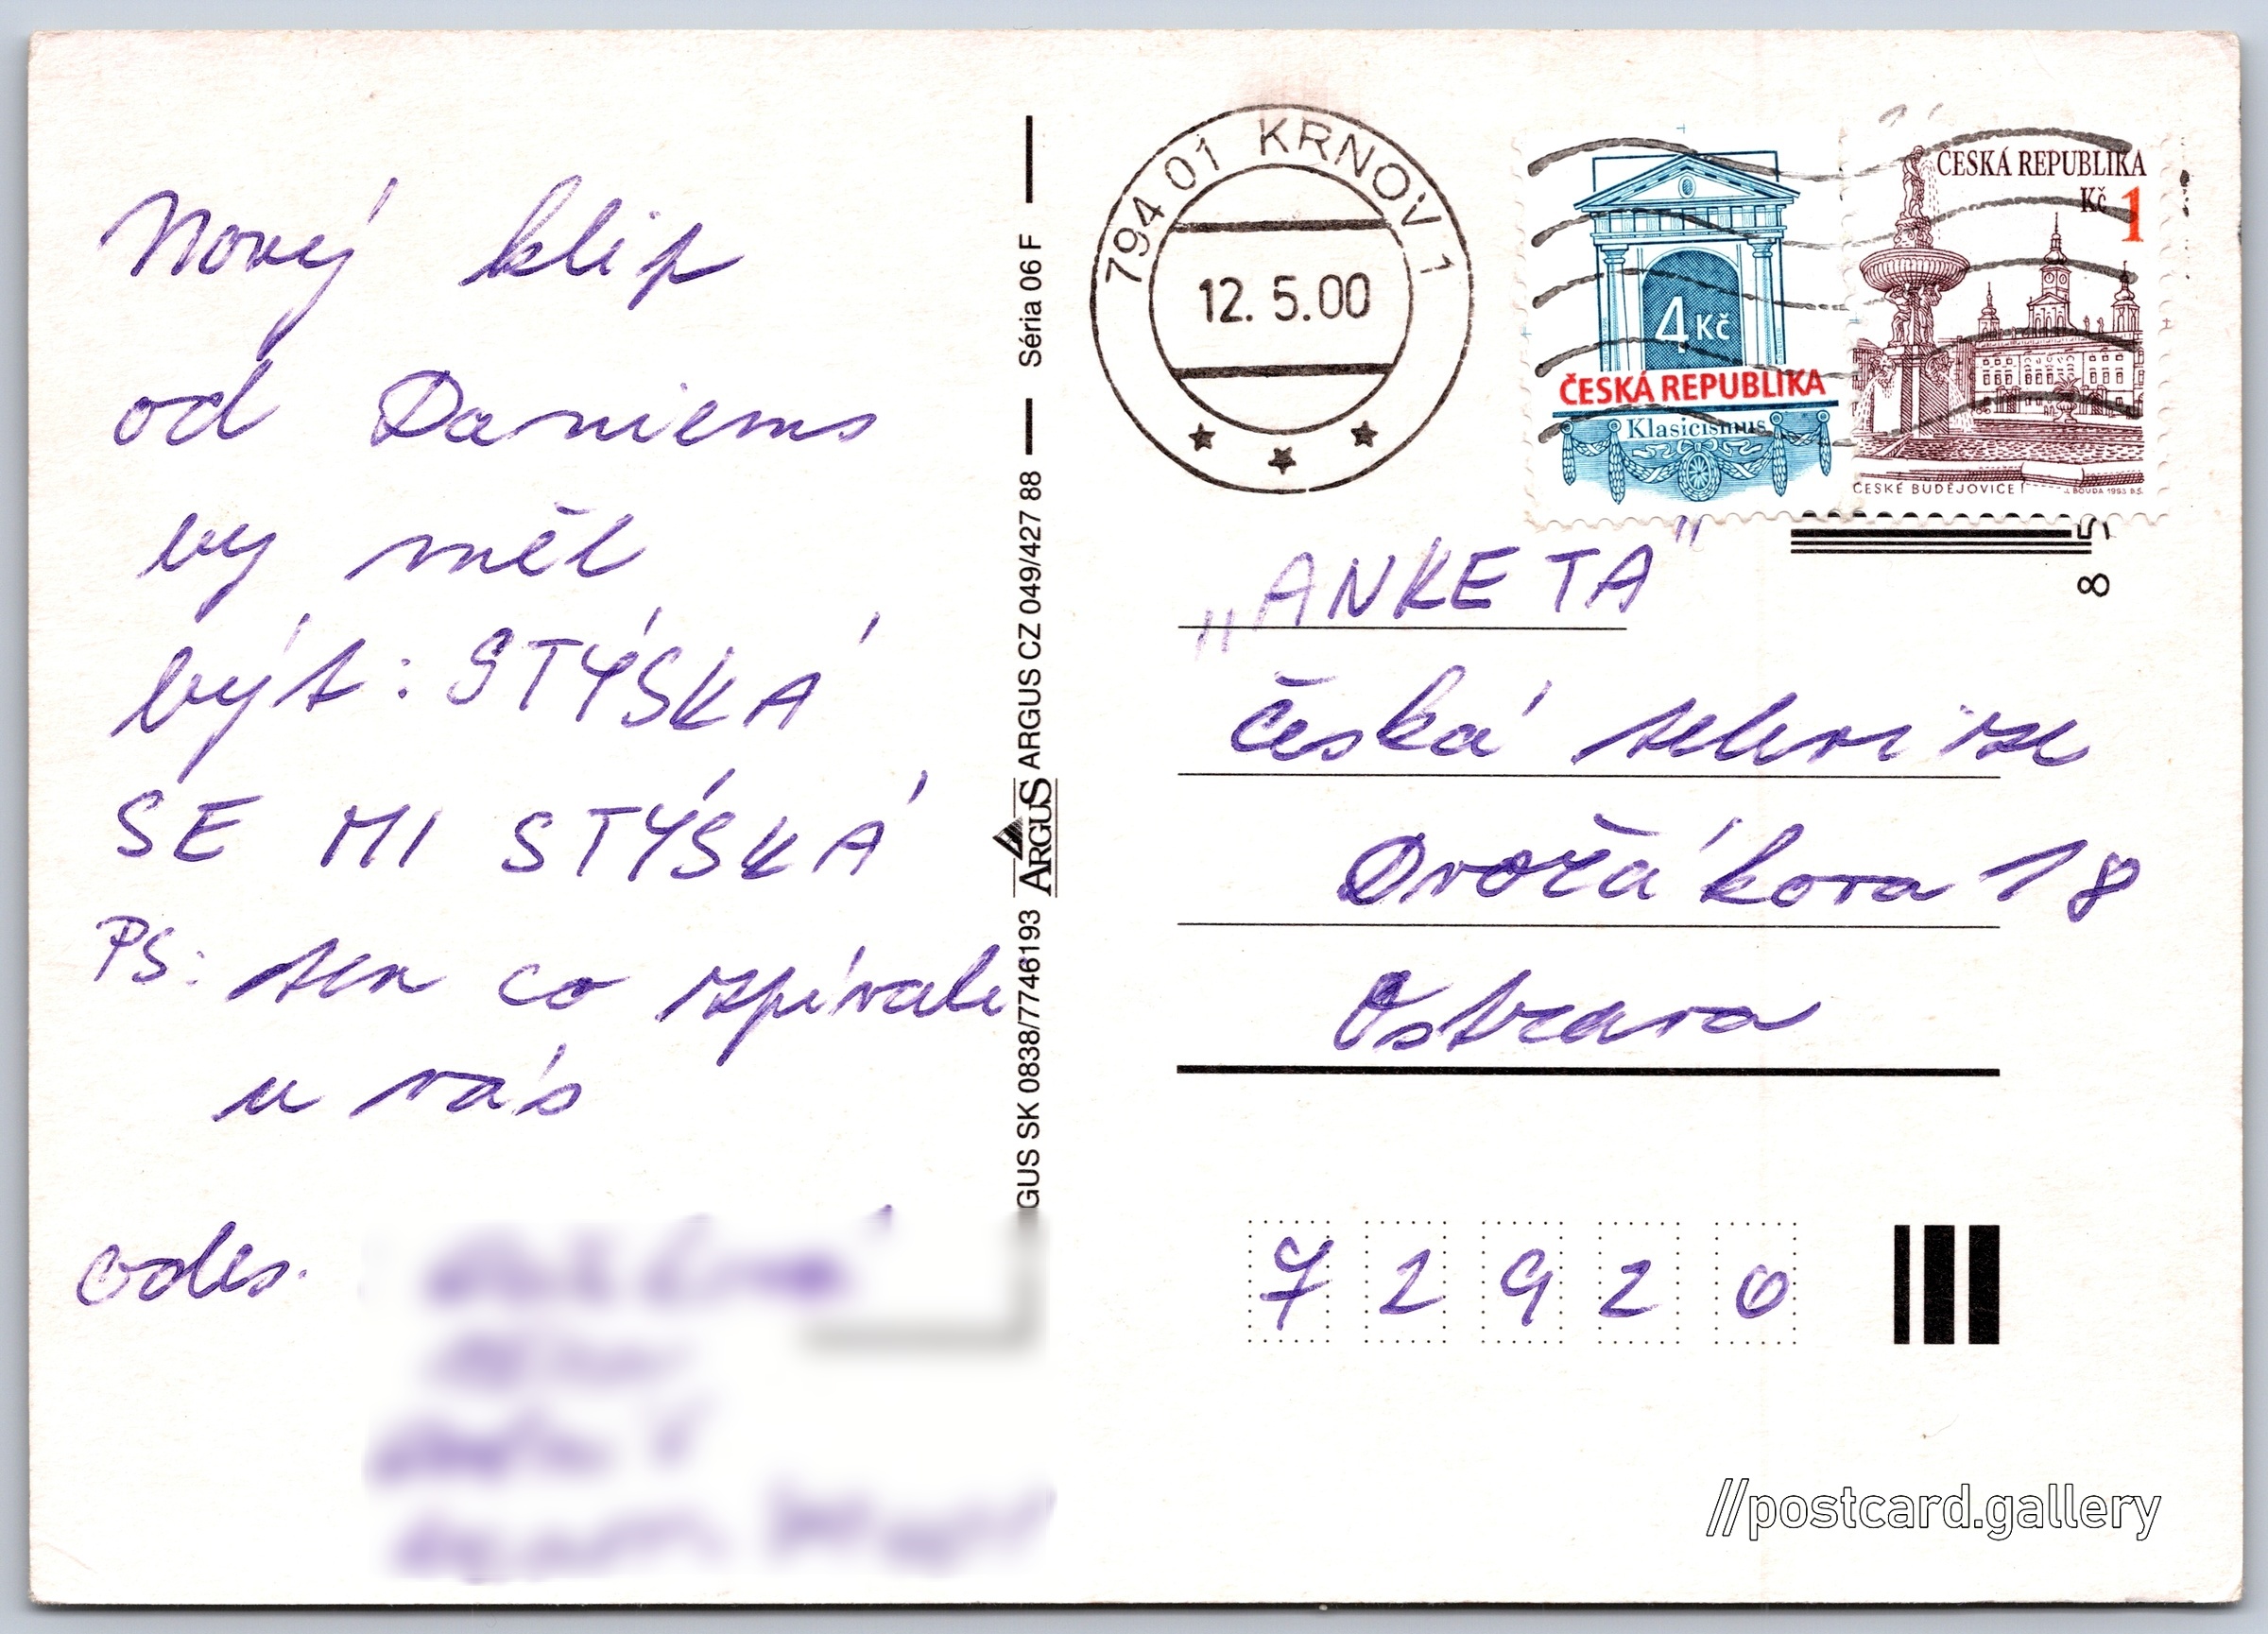 Nový klip
od Daniems
by měl
být: STÝSKÁ
SE MI STÝSKÁ
PS: ten co zpívali
u vás
odes.
Séria 06 F
ARGUS CZ 049/427 88
ARGUS
GUS SK 0838/7746193
794 01 KRNOV 1
12. 5.00
4 Kč
ČESKÁ REPUBLIKA
Klasicismus
ČESKÁ REPUBLIKA
Kč 1
ČESKÉ BUDĚJOVICE
J. BOUDA 1993 B.Š.
8
„ANKETA"
Česká televize
Dvořákova 18
Ostrava
72920
//postcard.gallery